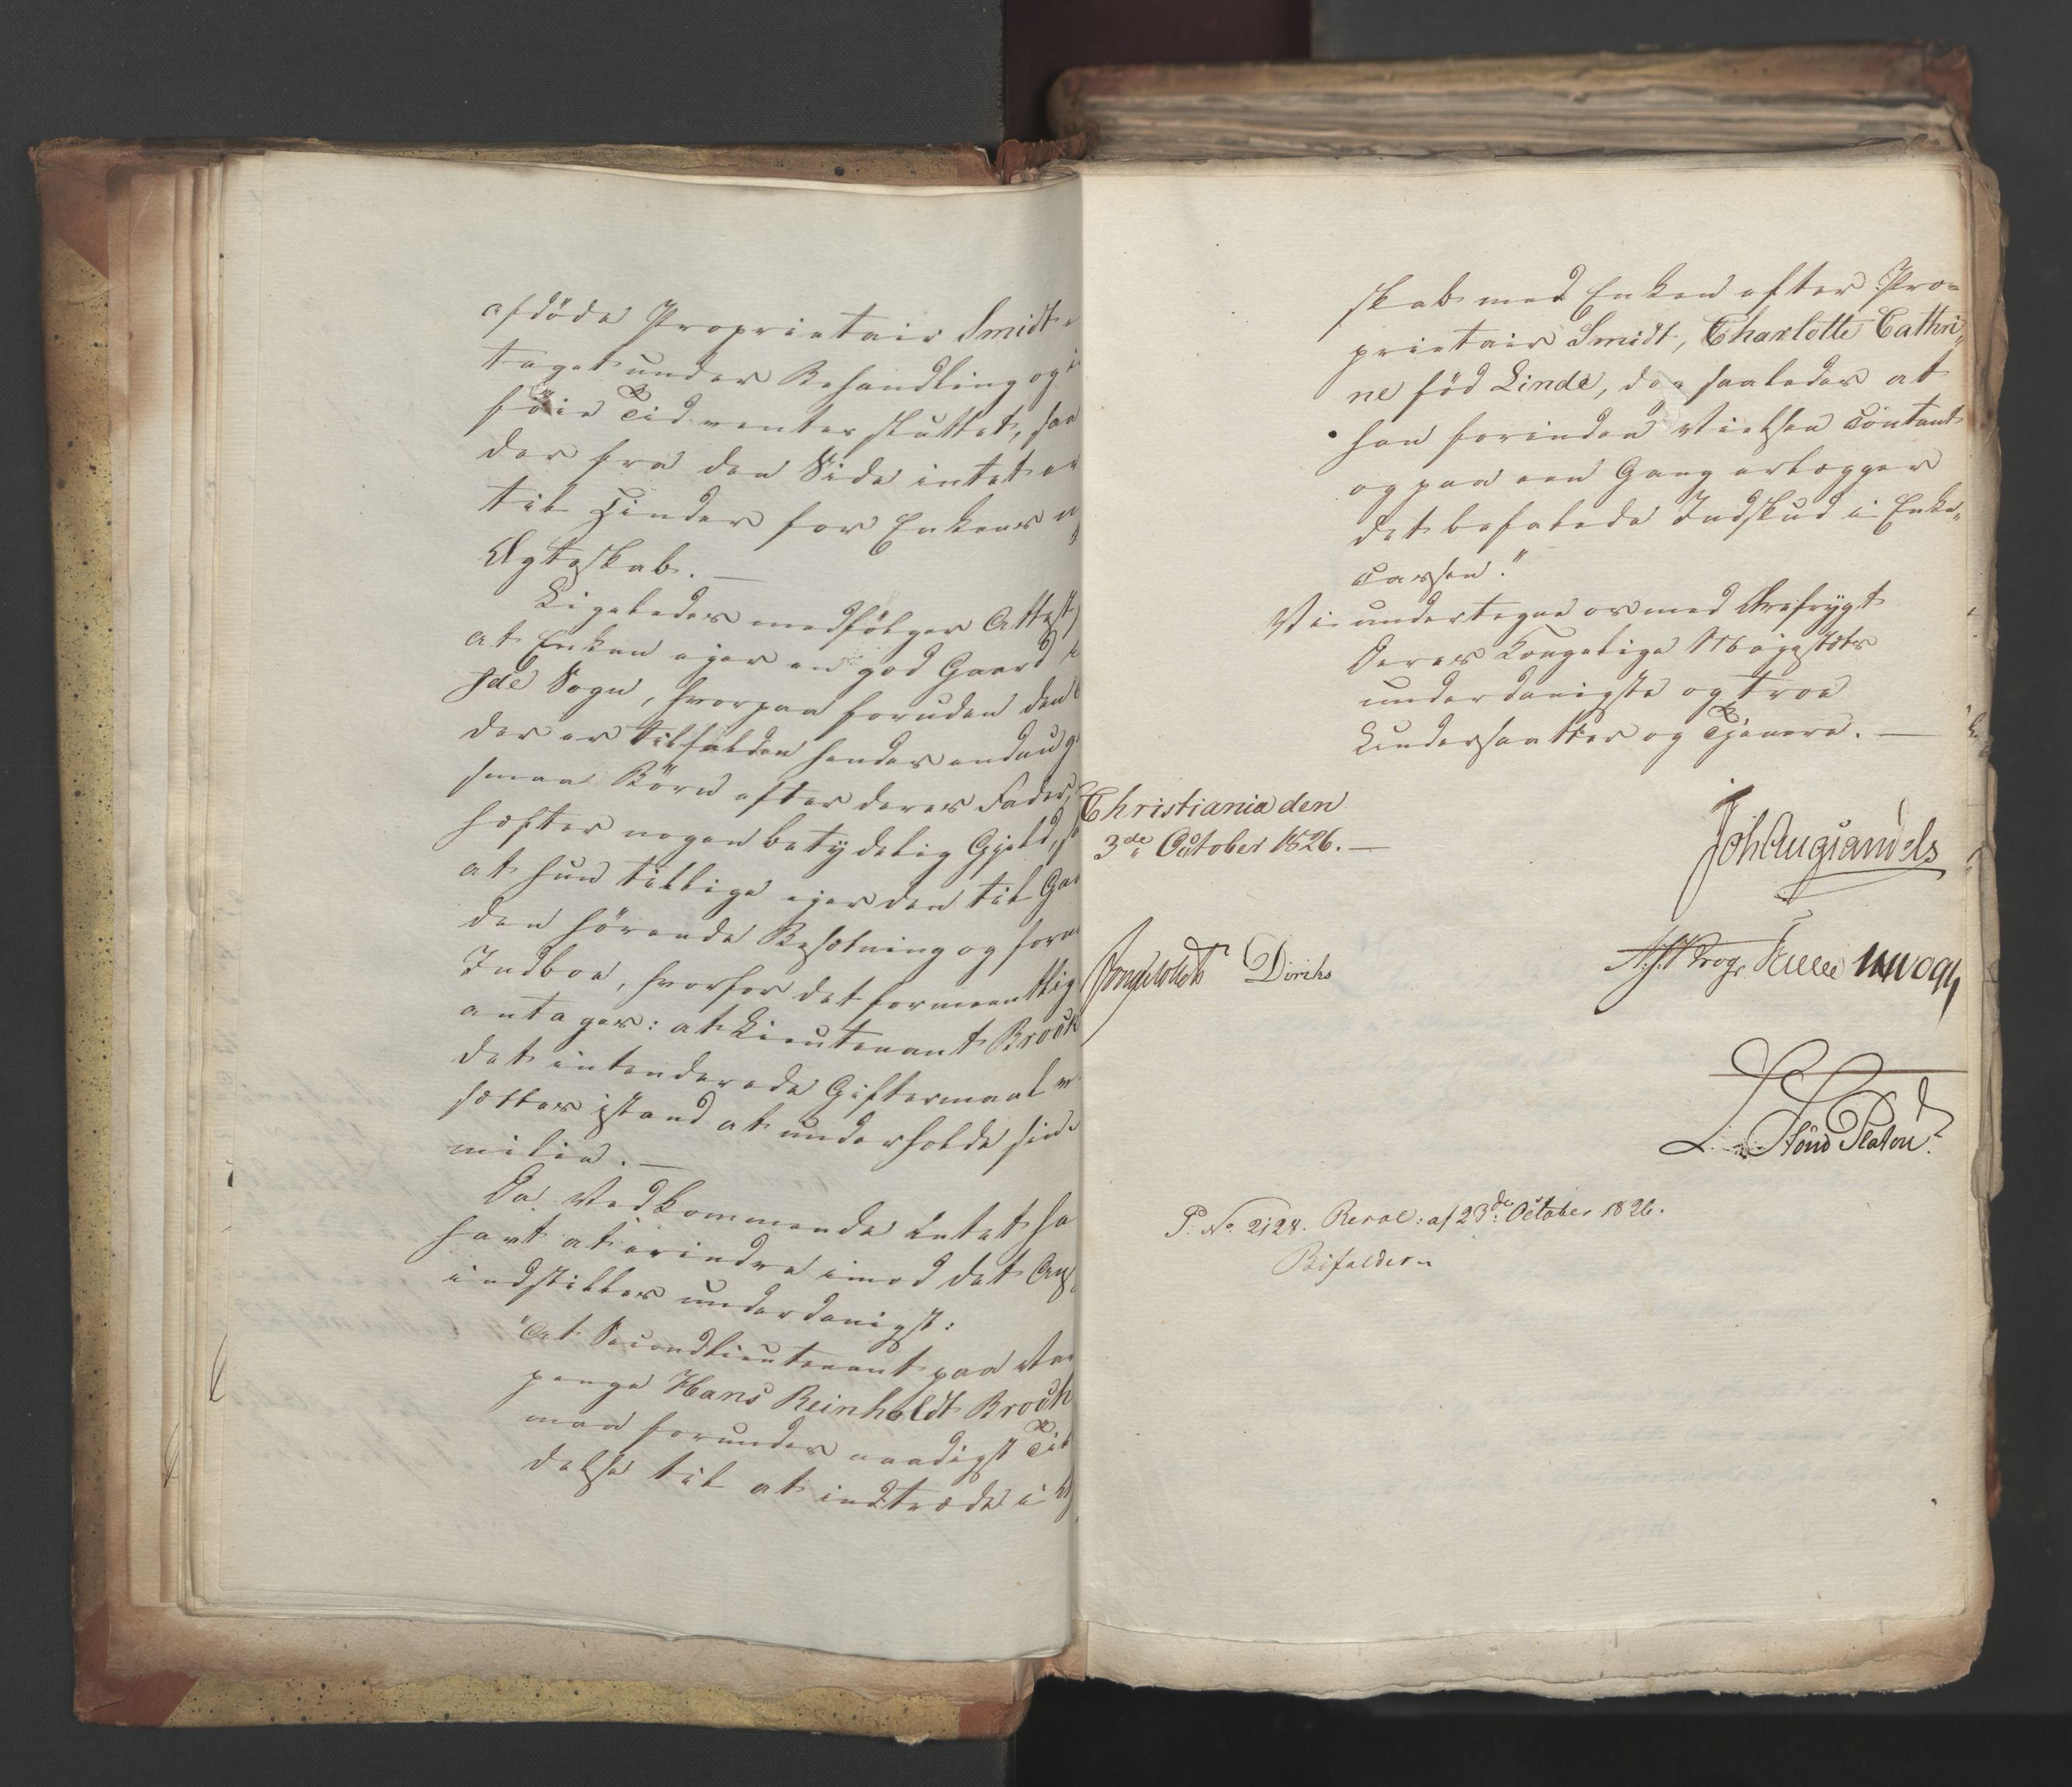 afdöde Proprietair Smidt e
taget under Behandling og i
föie Tid ventes sluttet, saa
der fra den Side intet er
til Hinder for Enkens n
Ægteskab. —
Ligeledes medfölger Attest,
at Enken ejer en god Gaard i
Hde Sogn, hvorpaa foruden den
der er tilfalden hendes endnu
smaa Börn efter deres Fader,
hæfter nogen betydelig Gjeld, sa
at hun tillige ejer den til Gaa
den hörende Besætning og forn
Indboe, hvorfor det formeentlig
antages: at Lieutenant Brock
det intenderede Giftermaal v
sættes istand at underholde sin
milie. —
Da Vedkommende Intet ha
havt at erindre imod det Ans
indstilles underdanigst:
"At Secondlieutenant paa Var
penge Hans Reinholdt Brock
maa forundes naadigst Til
delse til at indtræde i Æ
skab med Enken efter Pro=
prietair Smidt, Charlotte Cathri„
ne föd Linde, dog saaledes at
han forinden Vielsen contant
og paa een Gang erlægger
det befalede Indskud i Enke„
cassen."
Vi undertegne os med Ærefrygt
Deres Kongelige Majestæts
underdanigste og troe
Undersaatter og Tjenere. —
Christiania den
3de October 1826. —
Joh Aug Sandels
Diriks
L. Stoud Platou
P. No. 2128. Resol: af 23de October 1826.
Bifaldes